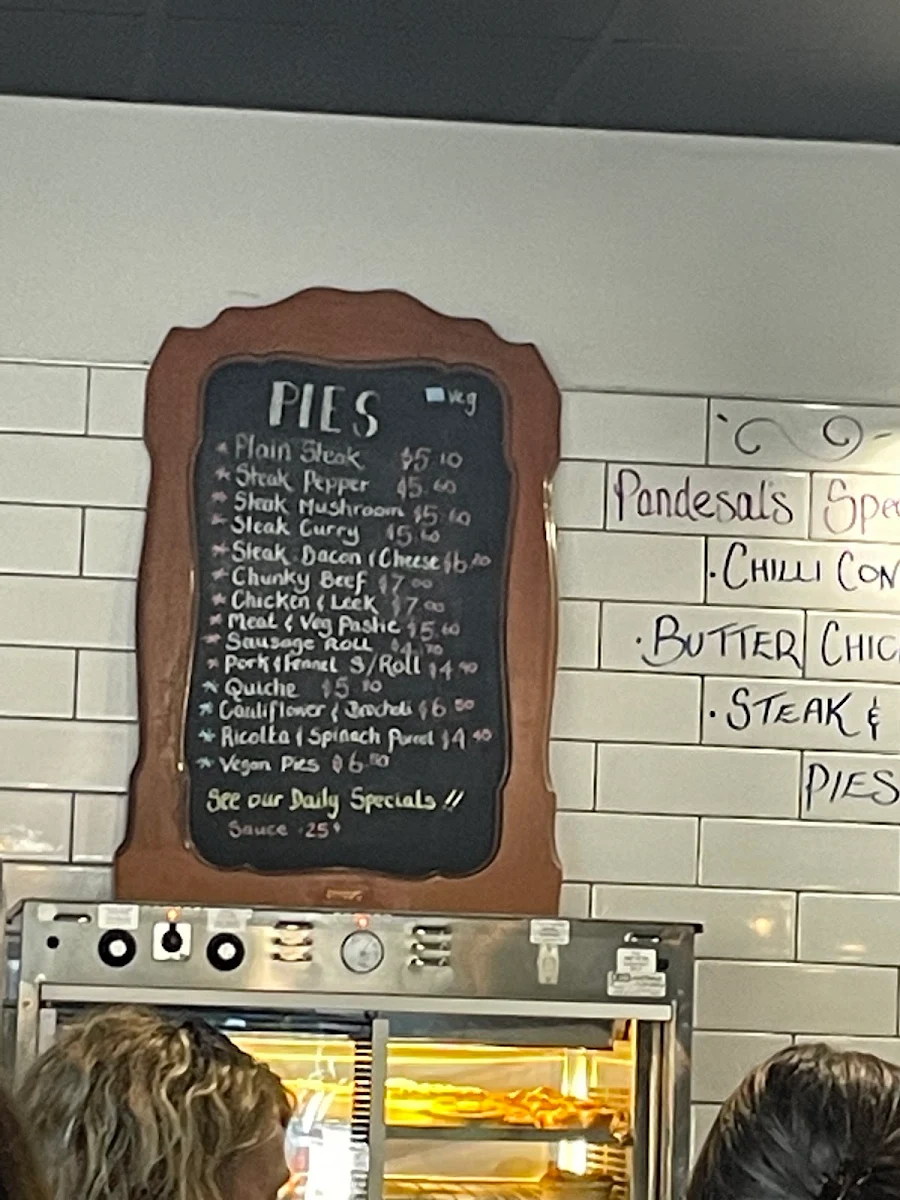 PIES
veg
* Plain Steak $5.10
* Steak Pepper $5.60
* Steak Mushroom $5.60
* Steak Curry $5.60
* Steak Bacon & Cheese $6.20
* Chunky Beef $7.00
* Chicken & Leek $7.00
* Meat & Veg Pastie $5.60
* Sausage Roll
* Pork & Fennel S/Roll $4.90
* Quiche
* Cauliflower & Brocholi
* Ricotta & Spinach Parcel $4.40
* Vegan Pies
See our Daily Specials !!
Sauce .25¢
Pandesal's Spec
· CHILLI CON
· BUTTER CHIC
· STEAK &
PIES